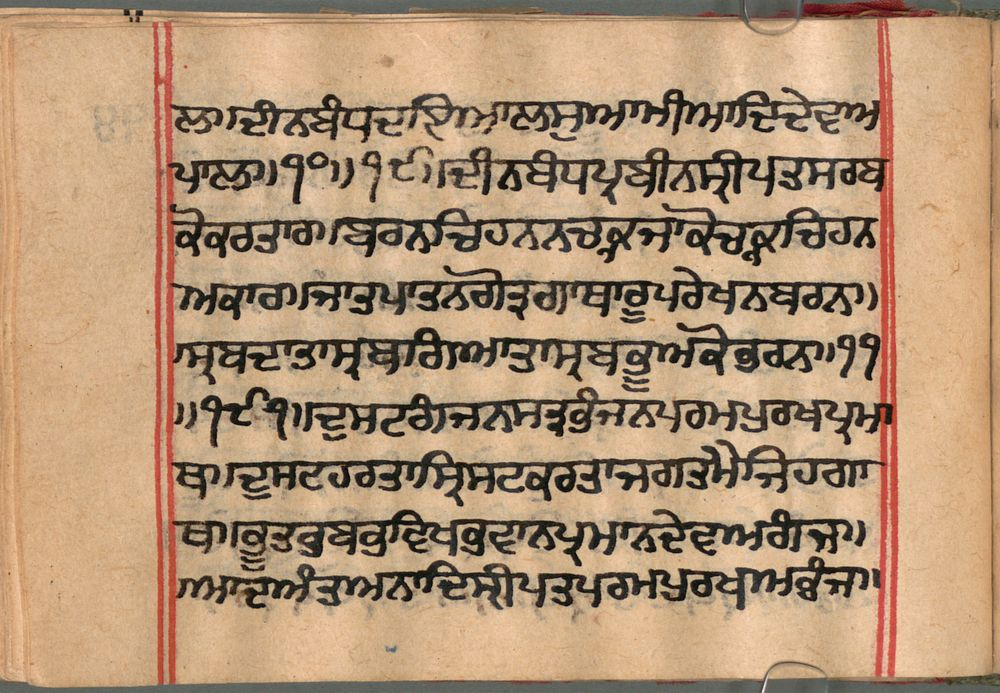 ਲਾ।ਦੀਨਬੰਧਦਇਆਲਸੁਆਮੀਆਦਿਦੇਵਅ
ਪਾਲਾ॥੧੦॥੧੯੦॥ਦੀਨਬੰਧਪ੍ਰਬੀਨਸ੍ਰੀਪਤਸਰਬ
ਕੋਕਰਤਾਰ।ਬਰਨਚਿਹਨਨਚਕ੍ਰਜਾਕੋਚਕ੍ਰਚਿਹਨ
ਅਕਾਰ।ਜਾਤਪਾਤਨਗੋਤ੍ਰਗਾਥਾਰੂਪਰੇਖਨਬਰਨ।
ਸ੍ਰਬਦਾਤਾਸ੍ਰਬਗਿਆਤਾਸ੍ਰਬਭੂਅਕੋਭਰਨ॥੧੧
॥੧੯੧॥ਦੁਸਟਗੰਜਨਸਤ੍ਰਭੰਜਨਪਰਮਪੁਰਖਪ੍ਰਮਾ
ਥ।ਦੁਸਟਹਰਤਾਸ੍ਰਿਸਟਕਰਤਾਜਗਤਮੈਜਿਹਗਾ
ਥ।ਭੂਤਭਬਭਵਿਖਭਵਾਨਪ੍ਰਮਾਨਦੇਵਅਗੰਜ।
ਆਦਅੰਤਅਨਾਦਿਸ੍ਰੀਪਤਪਰਮਪੁਰਖਅਭੰਜ॥